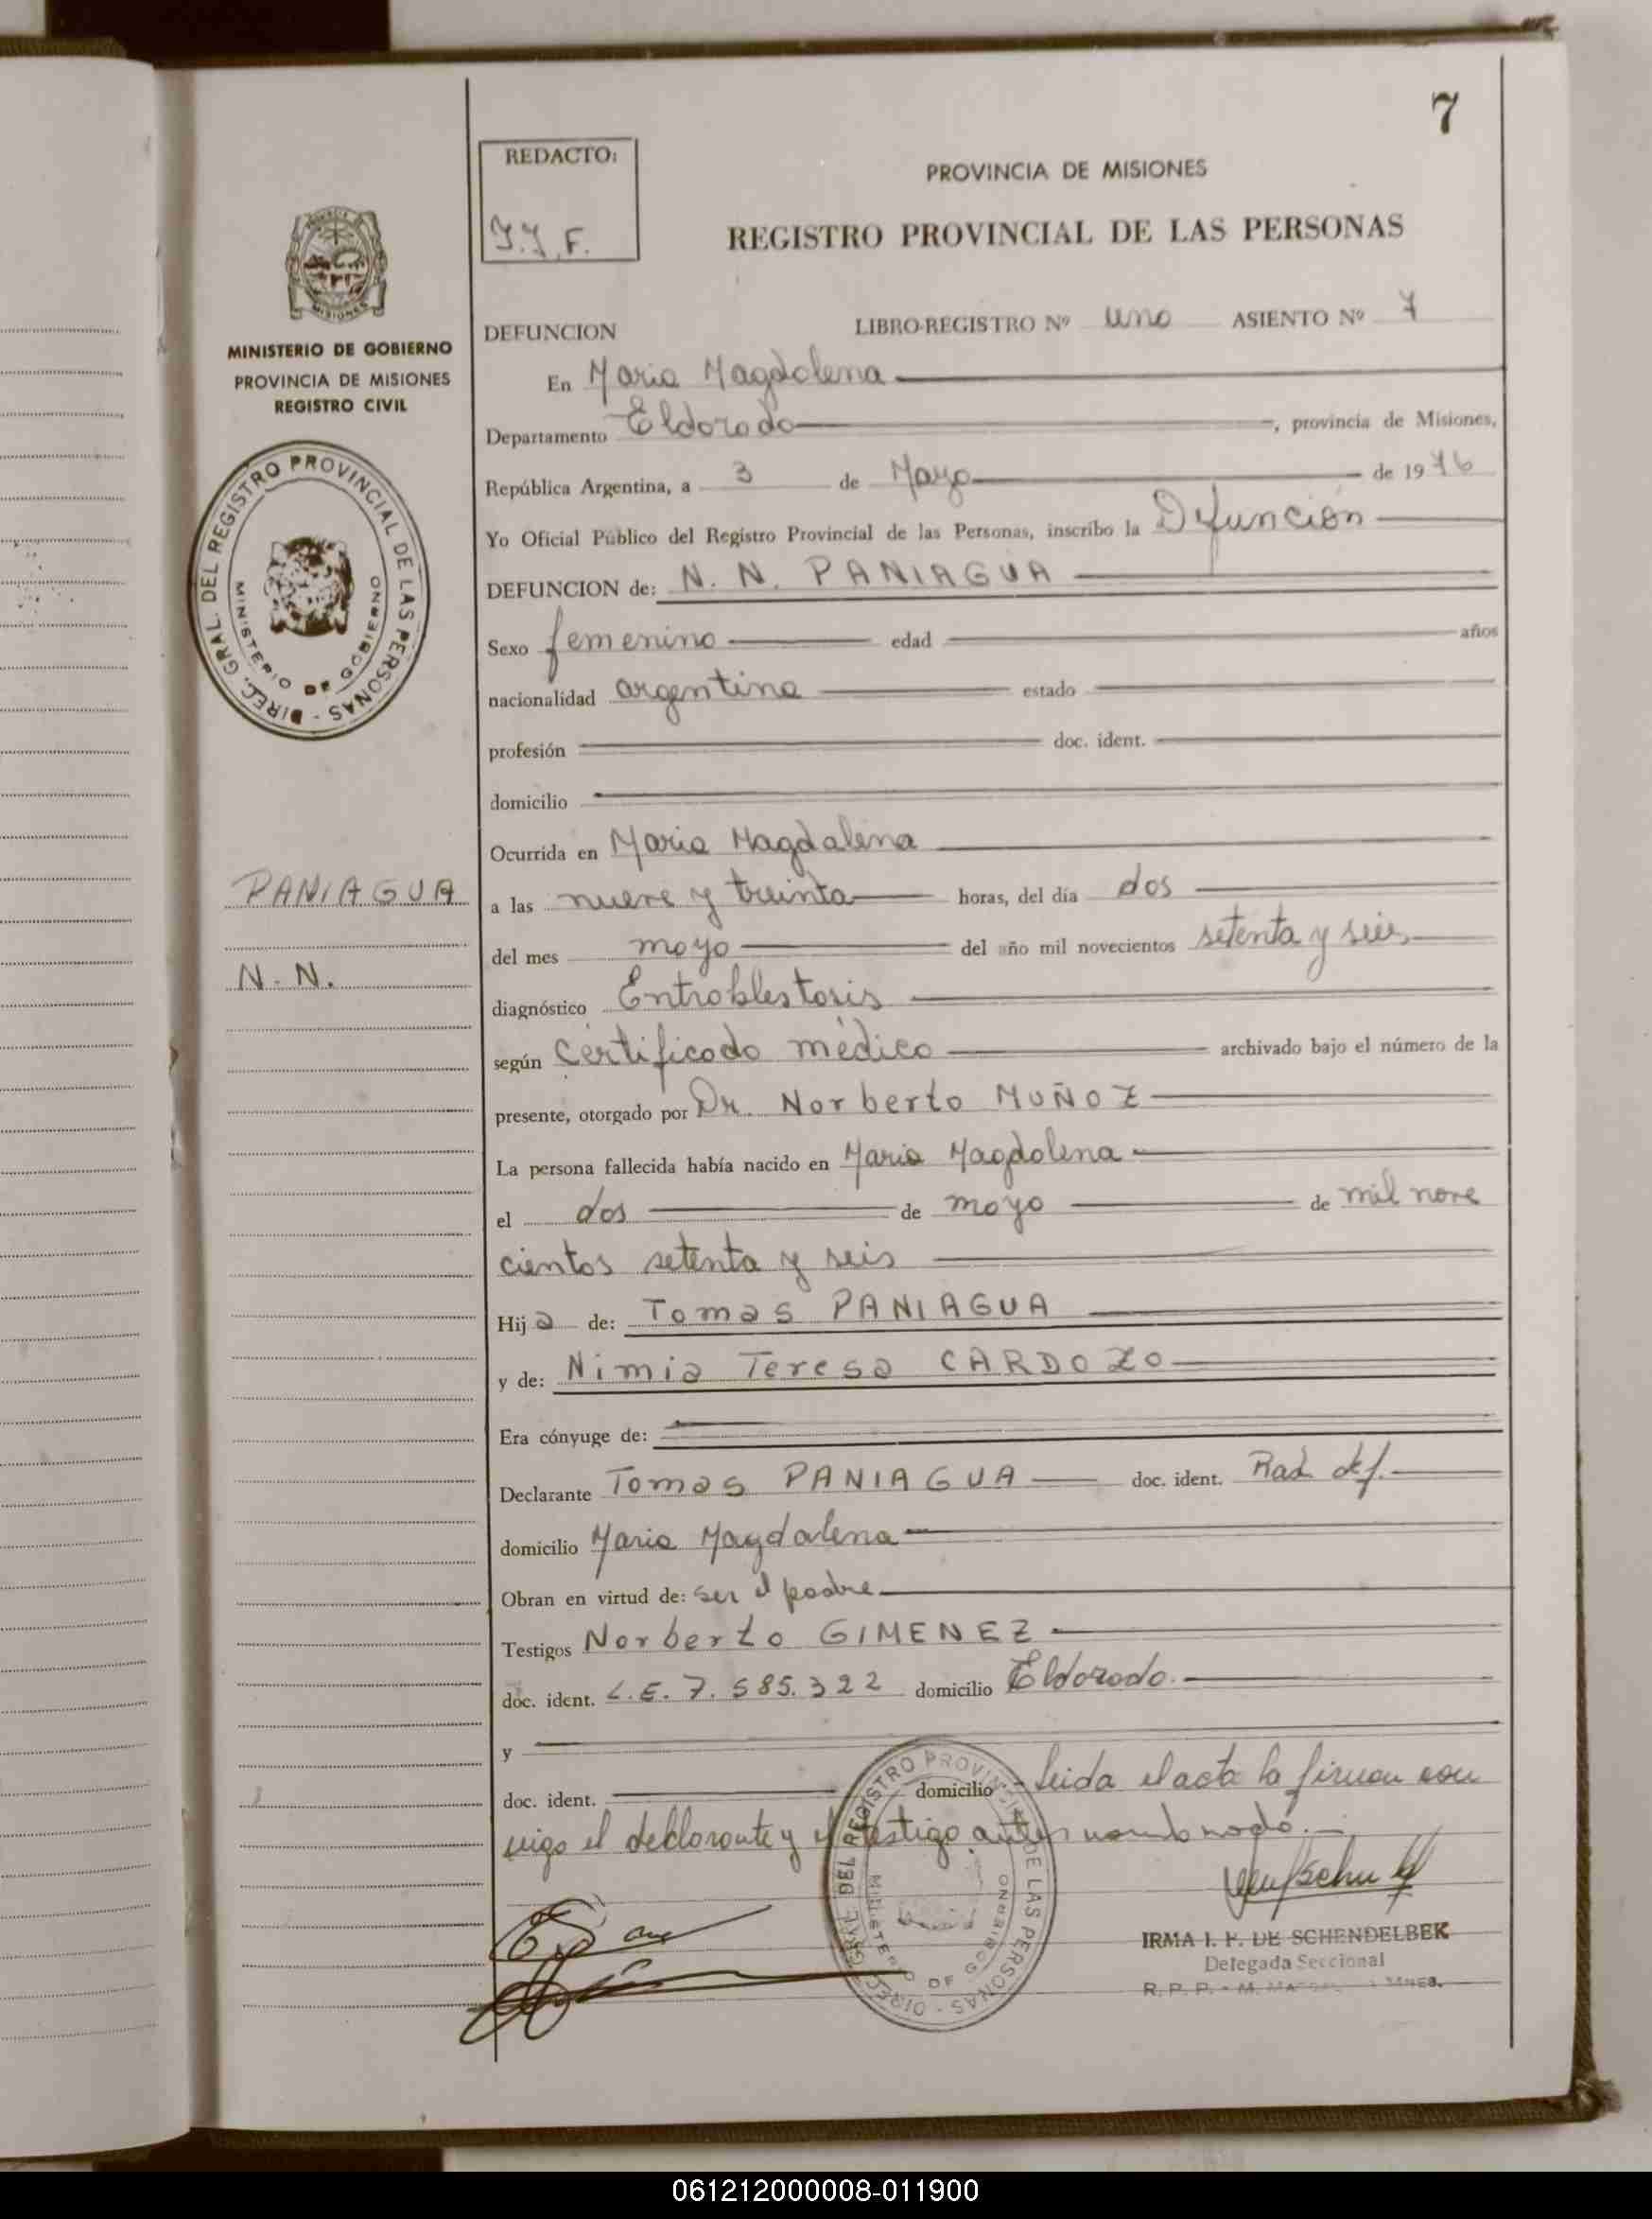 7
REDACTO:
J.J.F.
PROVINCIA DE MISIONES
REGISTRO PROVINCIAL DE LAS PERSONAS
MISIONES
MINISTERIO DE GOBIERNO
PROVINCIA DE MISIONES
REGISTRO CIVIL
DIREC. GRAL. DEL REGISTRO PROVINCIAL DE LAS PERSONAS -
MINISTERIO DE GOBIERNO
PANIAGUA
N. N.
DEFUNCION LIBRO-REGISTRO Nº uno ASIENTO Nº 7
En Maria Magdalena
Departamento Eldorado, provincia de Misiones,
República Argentina, a 3 de Mayo de 1976
Yo Oficial Público del Registro Provincial de las Personas, inscribo la Defunción
DEFUNCION de: N. N. PANIAGUA
Sexo femenino edad años
nacionalidad argentina estado
profesión doc. ident.
domicilio
Ocurrida en Maria Magdalena
a las nueve y treinta horas, del día dos
del mes mayo del año mil novecientos setenta y seis
diagnóstico Entroblestosis
según certificado médico archivado bajo el número de la
presente, otorgado por Dr. Norberto MUÑOZ
La persona fallecida había nacido en Maria Magdalena
el dos de mayo de mil nove
cientos setenta y seis
Hija de: Tomas PANIAGUA
y de: Nimia Teresa CARDOZO
Era cónyuge de:
Declarante Tomas PANIAGUA doc. ident. Rad. def.
domicilio Maria Magdalena
Obran en virtud de: ser el padre
Testigos Norberto GIMENEZ
doc. ident. L.E. 7.585.322 domicilio Eldorado.
y
doc. ident. domicilio - leida el acta la firman con
migo el declarante y el testigo antes nombrado.-
DIREC. GRAL. DEL REGISTRO PROVINCIAL DE LAS PERSONAS -
MINISTERIO DE GOBIERNO
IRMA I. F. DE SCHENDELBEK
Delegada Seccional
R. P. P. - M.
061212000008-011900